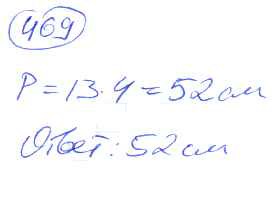 469
P = 13 · 4 = 52 см
Ответ: 52 см